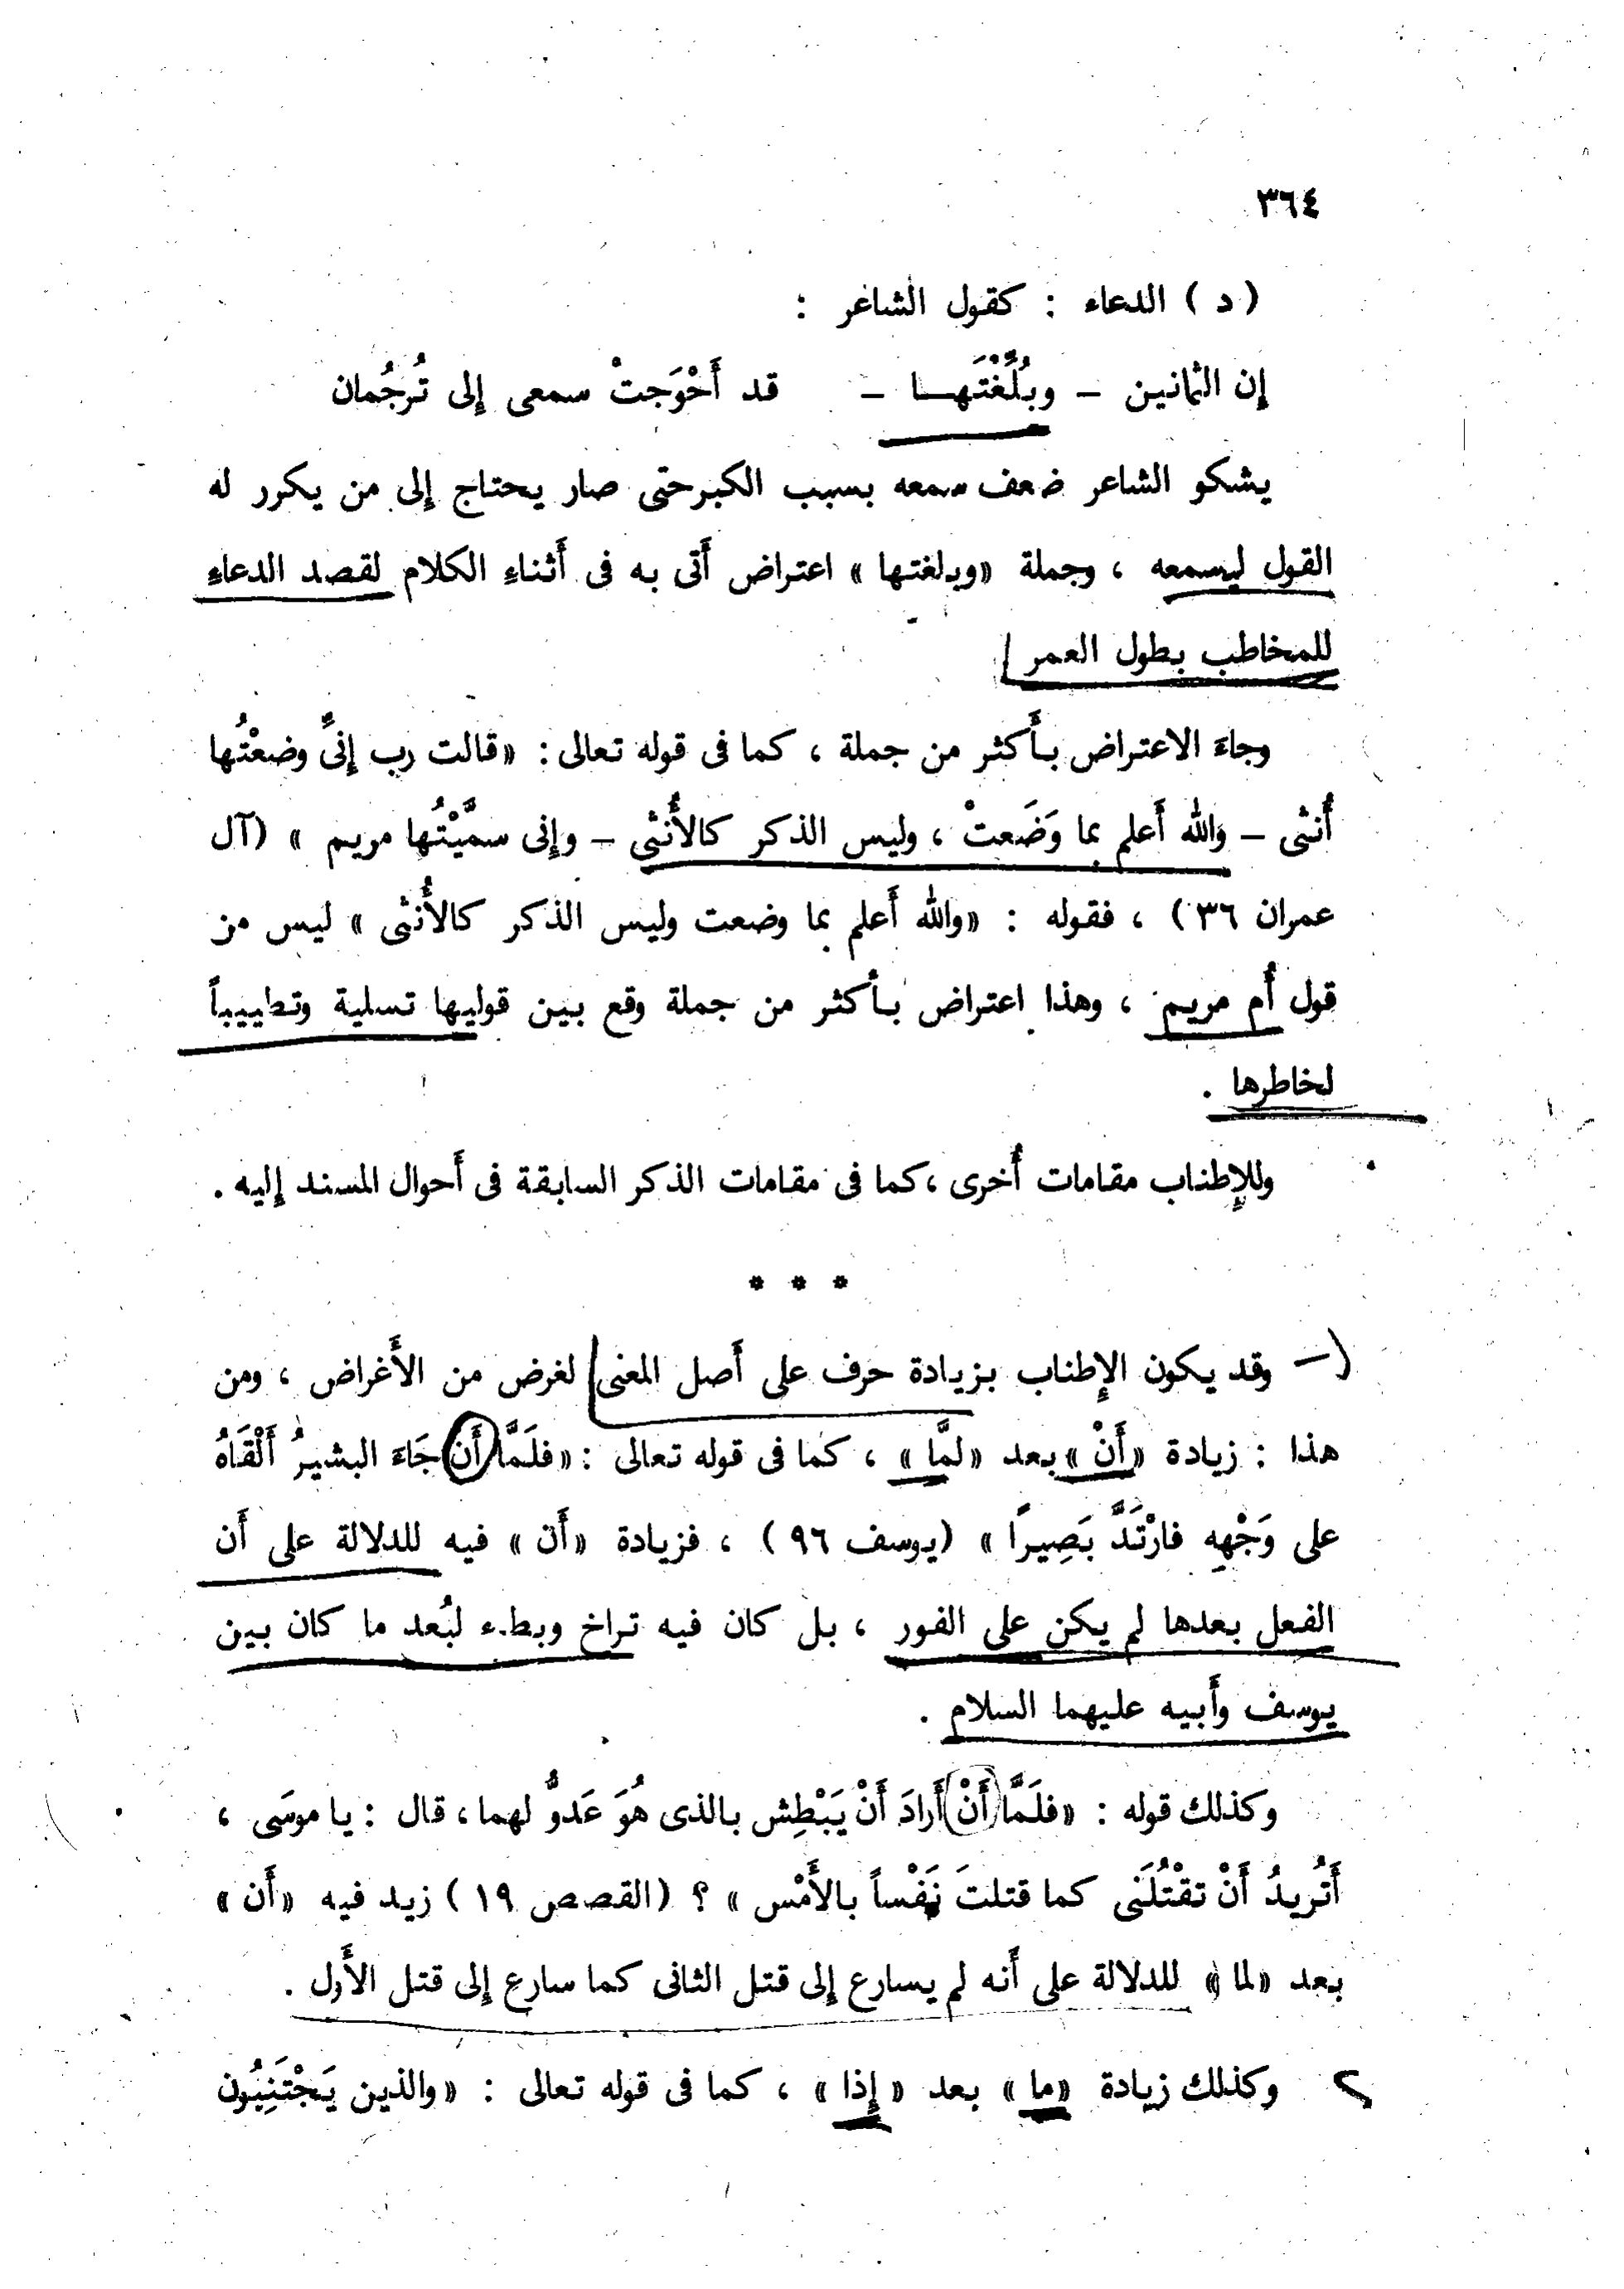 ٣٦٤
( د ) الدعاء : كقول الشاعر :
إن الثمانين – وبُلِّغْتَهـــا – قد أَحْوَجتْ سمعى إلى تُرجُمان
يشكو الشاعر ضعف سمعه بسبب الكبر حتى صار يحتاج إلى من يكرر له
القول ليسمعه ، وجملة «وبلغتها» اعتراض أَتى به فى أَثناءِ الكلام لقصد الدعاءِ
للمخاطب بطول العمر
وجاءَ الاعتراض بأَكثر من جملة ، كما فى قوله تعالى : «قالت رب إنىِّ وضعْتُها
أُنثى – والله أَعلم بما وَضَعتْ ، وليس الذكر كالأُنثى – وإنى سمَّيْتُها مريم » (آل
عمران ٣٦) ، فقوله : «والله أَعلم بما وضعت وليس الذكر كالأُنثى » ليس من
قول أُم مريم ، وهذا اعتراض بأَكثر من جملة وقع بين قوليها تسلية وتطييباً
لخاطرها .
وللإطناب مقامات أُخرى ، كما فى مقامات الذكر السابقة فى أَحوال المسند إليه .
* * *
١– وقد يكون الإطناب بزيادة حرف على أَصل المعنى لغرض من الأَغراض ، ومن
هذا : زيادة «أَنْ » بعد «لمَّا » ، كما فى قوله تعالى : «فلَمَّا أَن جَاءَ البشيرُ أَلْقَاهُ
على وَجْهِهِ فارْتَدَّ بَصِيرًا » (يوسف ٩٦ ) ، فزيادة «أَن » فيه للدلالة على أَن
الفعل بعدها لم يكن على الفور ، بل كان فيه تراخ وبطء لبُعد ما كان بين
يوسف وأَبيه عليهما السلام .
وكذلك قوله : «فلَمَّا أَنْ أَرادَ أَنْ يَبْطِش بالذى هُوَ عَدوٌّ لهما ، قال : يا موسَى ،
أَتُريدُ أَنْ تقْتُلَنى كما قتلتَ نَفْساً بالأَمْس » ؟ (القصص ١٩ ) زيد فيه «أَن »
بعد «لما » للدلالة على أَنه لم يسارع إلى قتل الثانى كما سارع إلى قتل الأَول .
٢ وكذلك زيادة «ما » بعد «إذا » ، كما فى قوله تعالى : «والذين يَجْتَنِبُون